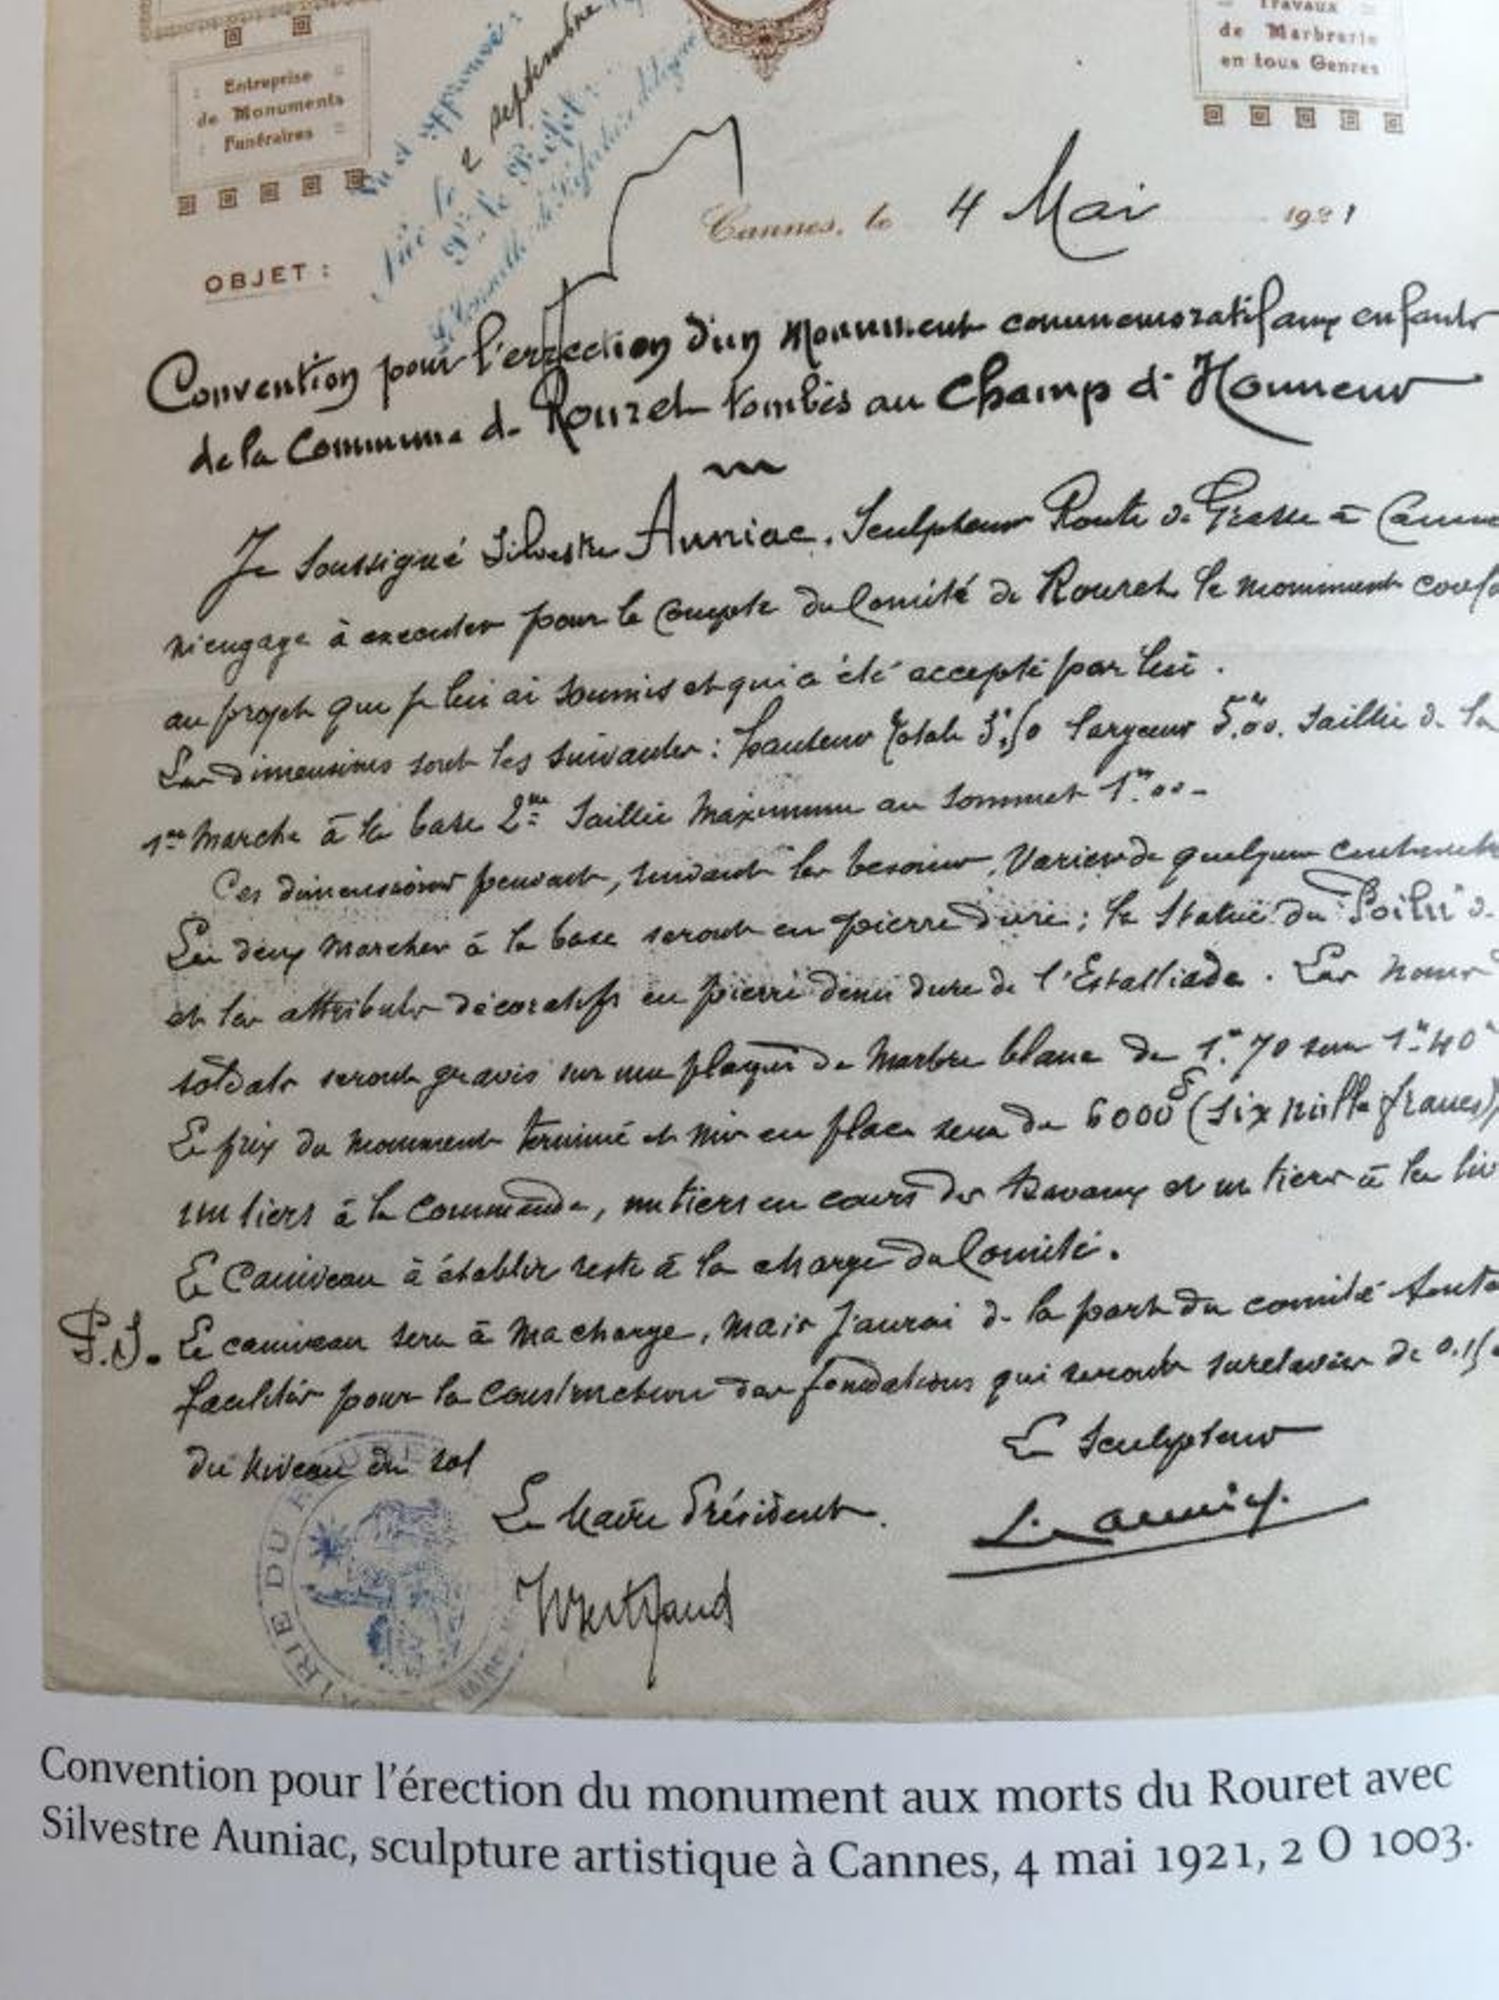 Entreprise
de Monuments
Funéraires
Travaux
de Marbrerie
en tous Genres
Vu et approuvé
Nice, le 2 septembre
Pr le Préfet :
Le Conseiller de Préfecture délégué
Cannes, le 4 Mai 1921
OBJET :
Convention pour l'errection d'un Monument commemoratif aux enfants
de la Commune de Rouret tombés au Champ d'Honneur
Je soussigné Silvestre Auniac, Sculpteur Route de Grasse à Cannes
m'engage à executer pour le Compte du Comité de Rouret le monument
au projet que je lui ai soumis et qui a été accepté par lui.
Les dimensions sont les suivantes : hauteur totale largeur 5m,00. Saillie de la
1ere Marche à la base 2m Saillie Maximum au sommet 1m00-
Ces dimensions peuvent, suivant les besoins, Varier de quelques
Les deux marches à la base seront en pierre dure ; la Statue du "Poilu"
et les attributs décoratifs en pierre demi dure de l'Estaillade. Les noms
soldats seront gravés sur une plaque de Marbre blanc de 1m70 sur 1m40
Le prix du monument terminé et mis en place sera de 6000f (six mille francs),
un tiers à la Commande, un tiers en cours des travaux et un tiers à la
Le Caniveau à établir reste à la charge du Comité.
P.S. Le caniveau sera à ma charge, mais j'aurai de la part du comité
facilités pour la construction des fondations qui seront surelevées de
du niveau du sol
Le Sculpteur
Le Maire Président.
S. Auniac
Bertrand
MAIRIE DU ROURET
Convention pour l'érection du monument aux morts du Rouret avec
Silvestre Auniac, sculpture artistique à Cannes, 4 mai 1921, 2 O 1003.